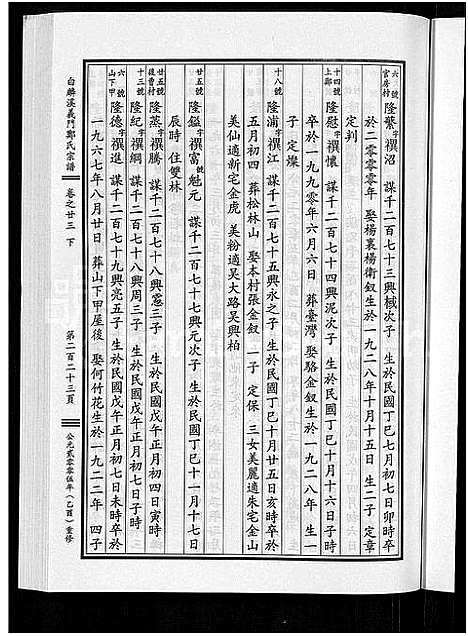 六號 官房村 隆繁 字 禩沼 謀千二百七十三興棫次子 生於民國丁巳七月初七日卯時卒
於二零零零年 娶楊裏楊衛釵生於一九二八年十月十五日 生二子 定章
定判
十四號 上鄭 隆慰 字 禩懷 謀千二百七十四興泥次子 生於民國丁巳十月十六日子時
卒於一九九零年六月六日 葬臺灣 娶駱金釵生於一九二八年 生一
子 定燦
十八號 隆浦 字 禩江 謀千二百七十五興永之子 生於民國丁巳十月廿五日亥時卒於
五月初四 葬松林山 娶本村張金釵 一子 定保 三女美麗適朱宅金山
美仙適新宅金虎 美粉適吴大路吴興柏
廿五號 隆鎰 字 禩富 號 魁元 謀千二百七十七興元次子 生於民國丁巳十一月十七日
辰時 住雙林
廿五號 後曹村 隆烝 字 禩騰 謀千二百七十八興憲三子 生於民國戊午正月初四日寅時
十三號 隆紀 字 禩綱 謀千二百七十八興周三子 生於民國戊午正月初七日子時
六號 山下甲 隆德 字 禩進 謀千二百七十九興亮五子 生於民國戊午正月初七日未時卒於
一九六七年八月廿日 葬山下甲屋後 娶何竹花生於一九二二年 四子
白麟溪義門鄭氏宗譜 卷之廿三 下 第二百二十三頁 公元貳零零伍年（乙酉）重修